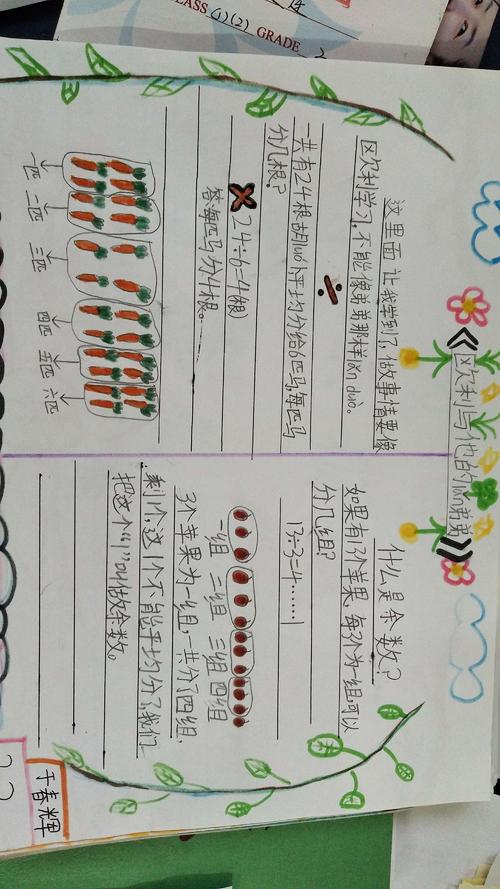 CLASS (1)(2) GRADE 2
《欧利与他的lǎn弟弟》
这里面 让我学到了,做事情要像
欧利学习,不能像弟弟那样lǎn duò。
÷
一共有24根胡luó卜平均分给6匹马,每匹马
分几根?
×
24÷6=4(根)
答:每匹马分4根。
一匹 二匹 三匹 四匹 五匹 六匹
什么是余数?
如果有13个苹果,每3个为一组,可以
分几组?
13÷3=4……1
一组 二组 三组 四组
3个苹果为一组,一共分了四组,
剩1个,这1个不能平均分了,我们
把这个“1”叫做余数。
于春辉